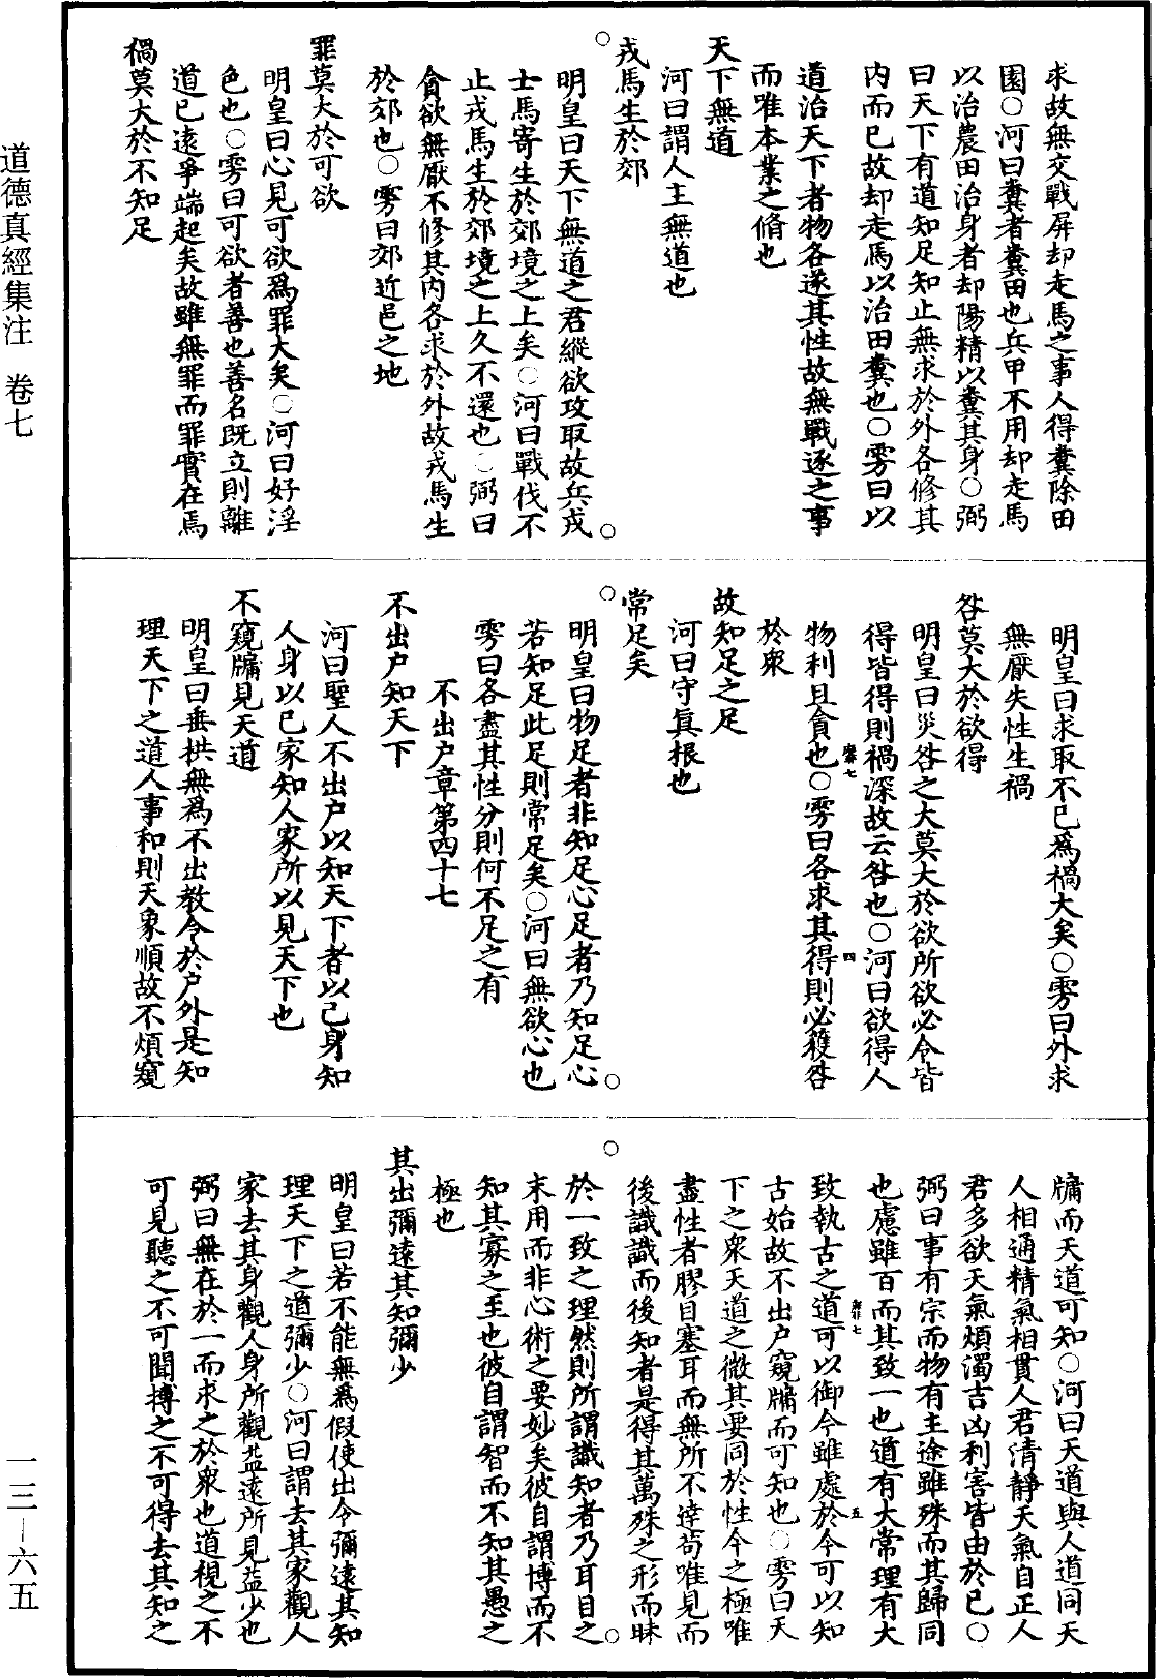 求故無交戰屏却走馬之事人得糞除田
園○河曰糞者糞田也兵甲不用却走馬
以治農田治身者却陽精以糞其身○弼
曰天下有道知足知止無求於外各修其
内而已故却走馬以治田糞也○雱曰以
道治天下者物各遂其性故無戰逐之事
而唯本業之脩也
天下無道
河曰謂人主無道也
戎馬生於郊
明皇曰天下無道之君縱欲攻取故兵戎
士馬寄生於郊境之上矣○河曰戰伐不
止戎馬生於郊境之上久不還也○弼曰
貪欲無厭不修其内各求於外故戎馬生
於郊也○雱曰郊近邑之地
罪莫大於可欲
明皇曰心見可欲爲罪大矣○河曰好淫
色也○雱曰可欲者善也善名既立則離
道已遠爭端起矣故雖無罪而罪實在焉
禍莫大於不知足
明皇曰求取不已爲禍大矣○雱曰外求
無厭失性生禍
咎莫大於欲得
明皇曰災咎之大莫大於欲所欲必令皆
得皆得則禍深故云咎也○河曰欲得人
物利且貪也○雱曰各求其得則必獲咎
於衆
故知足之足
河曰守真根也
常足矣
明皇曰物足者非知足心足者乃知足心
若知足此足則常足矣○河曰無欲心也
雱曰各盡其性分則何不足之有
不出户章第四十七
不出户知天下
河曰聖人不出户以知天下者以己身知
人身以己家知人家所以見天下也
不窺牖見天道
明皇曰垂拱無爲不出教令於户外是知
理天下之道人事和則天象順故不煩窺
牖而天道可知○河曰天道與人道同天
人相通精氣相貫人君清靜天氣自正人
君多欲天氣煩濁吉凶利害皆由於已○
弼曰事有宗而物有主途雖殊而其歸同
也慮雖百而其致一也道有大常理有大
致執古之道可以御今雖處於今可以知
古始故不出户窺牖而可知也○雱曰天
下之衆天道之微其要同於性今之極唯
盡性者膠目塞耳而無所不達苟唯見而
後識識而後知者是得其萬殊之形而昧
於一致之理然則所謂識知者乃耳目之
末用而非心術之要妙矣彼自謂博而不
知其寡之至也彼自謂智而不知其愚之
極也
其出彌遠其知彌少
明皇曰若不能無爲假使出令彌遠其知
理天下之道彌少○河曰謂去其家觀人
家去其身觀人身所觀益遠所見益少也
弼曰無在於一而求之於衆也道視之不
可見聽之不可聞搏之不可得去其知之
道德真經集注　卷七
一三—六五